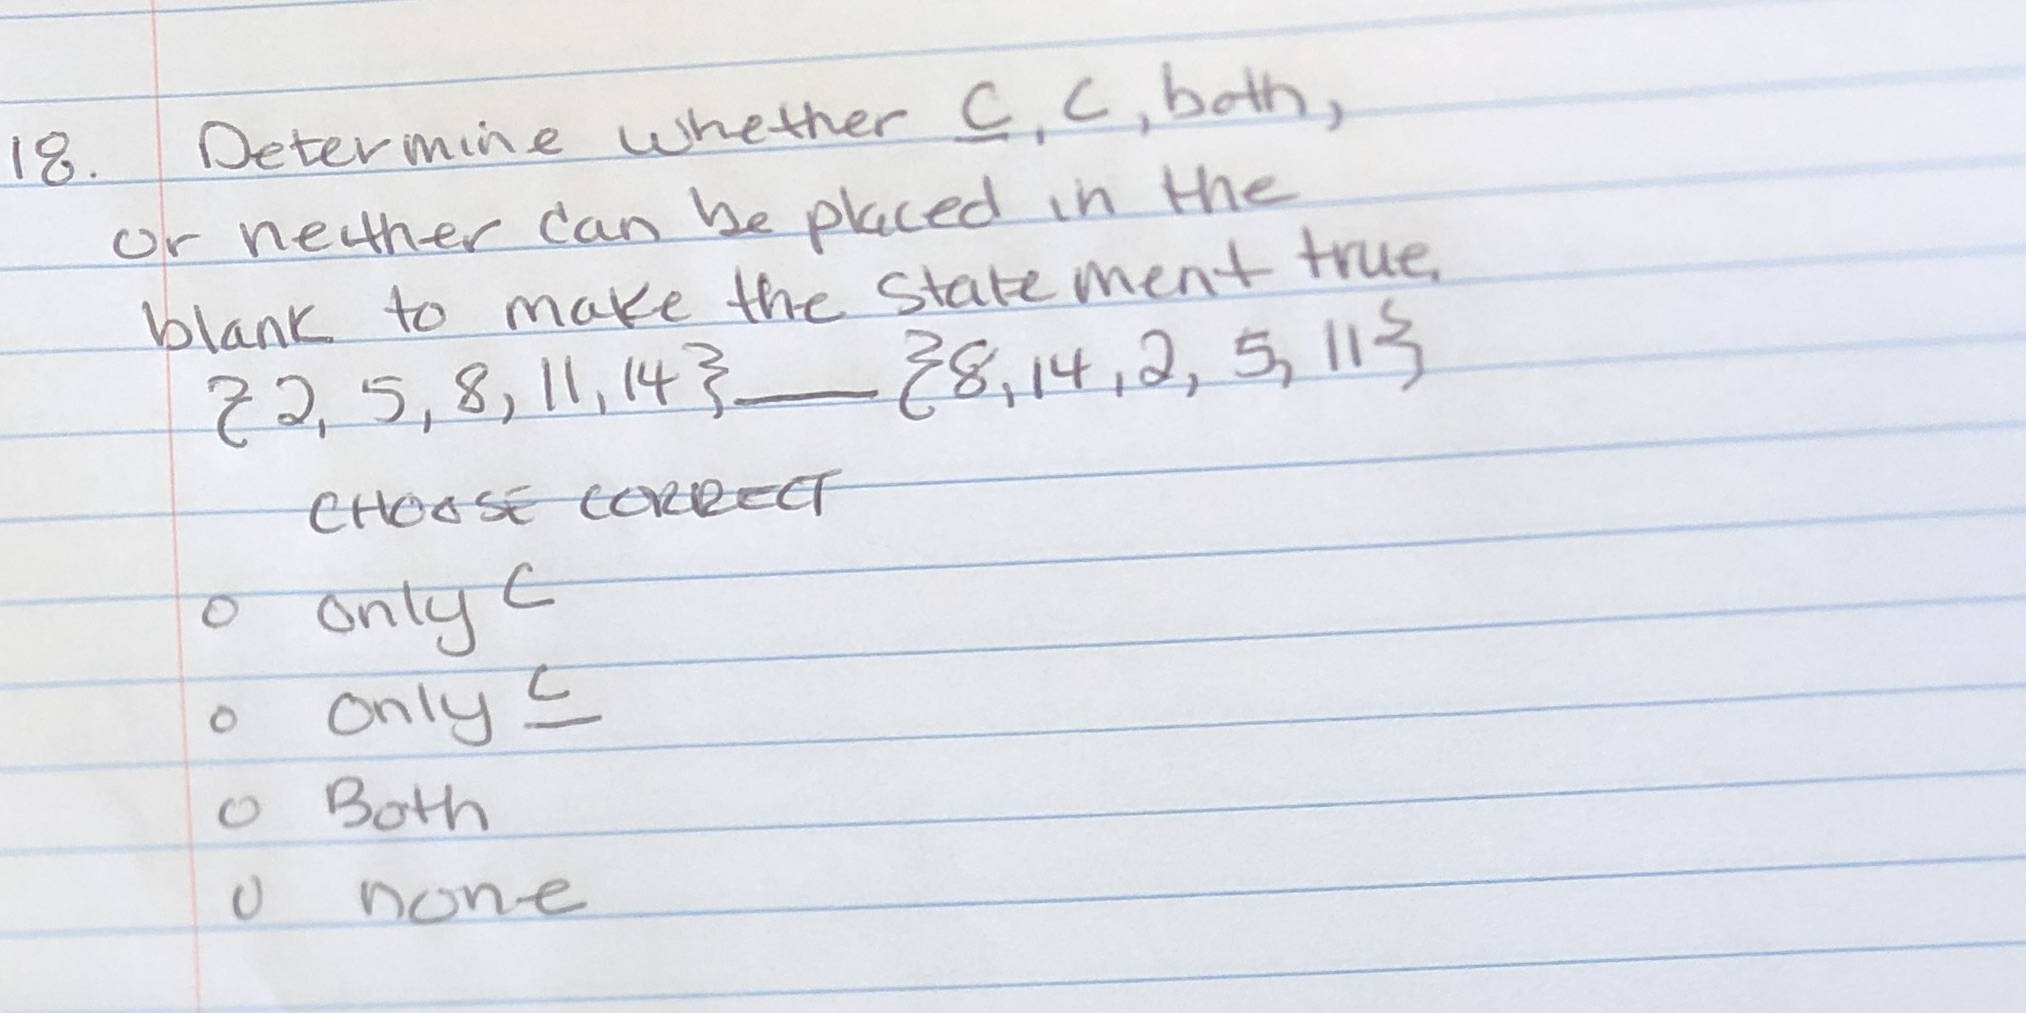 18. Determine whether ⊆, ⊂, both,
or neither can be placed in the
blank to make the statement true.
{2, 5, 8, 11, 14} __ {8, 14, 2, 5, 11}
CHOOSE CORRECT
o only ⊂
o only ⊆
o Both
o none